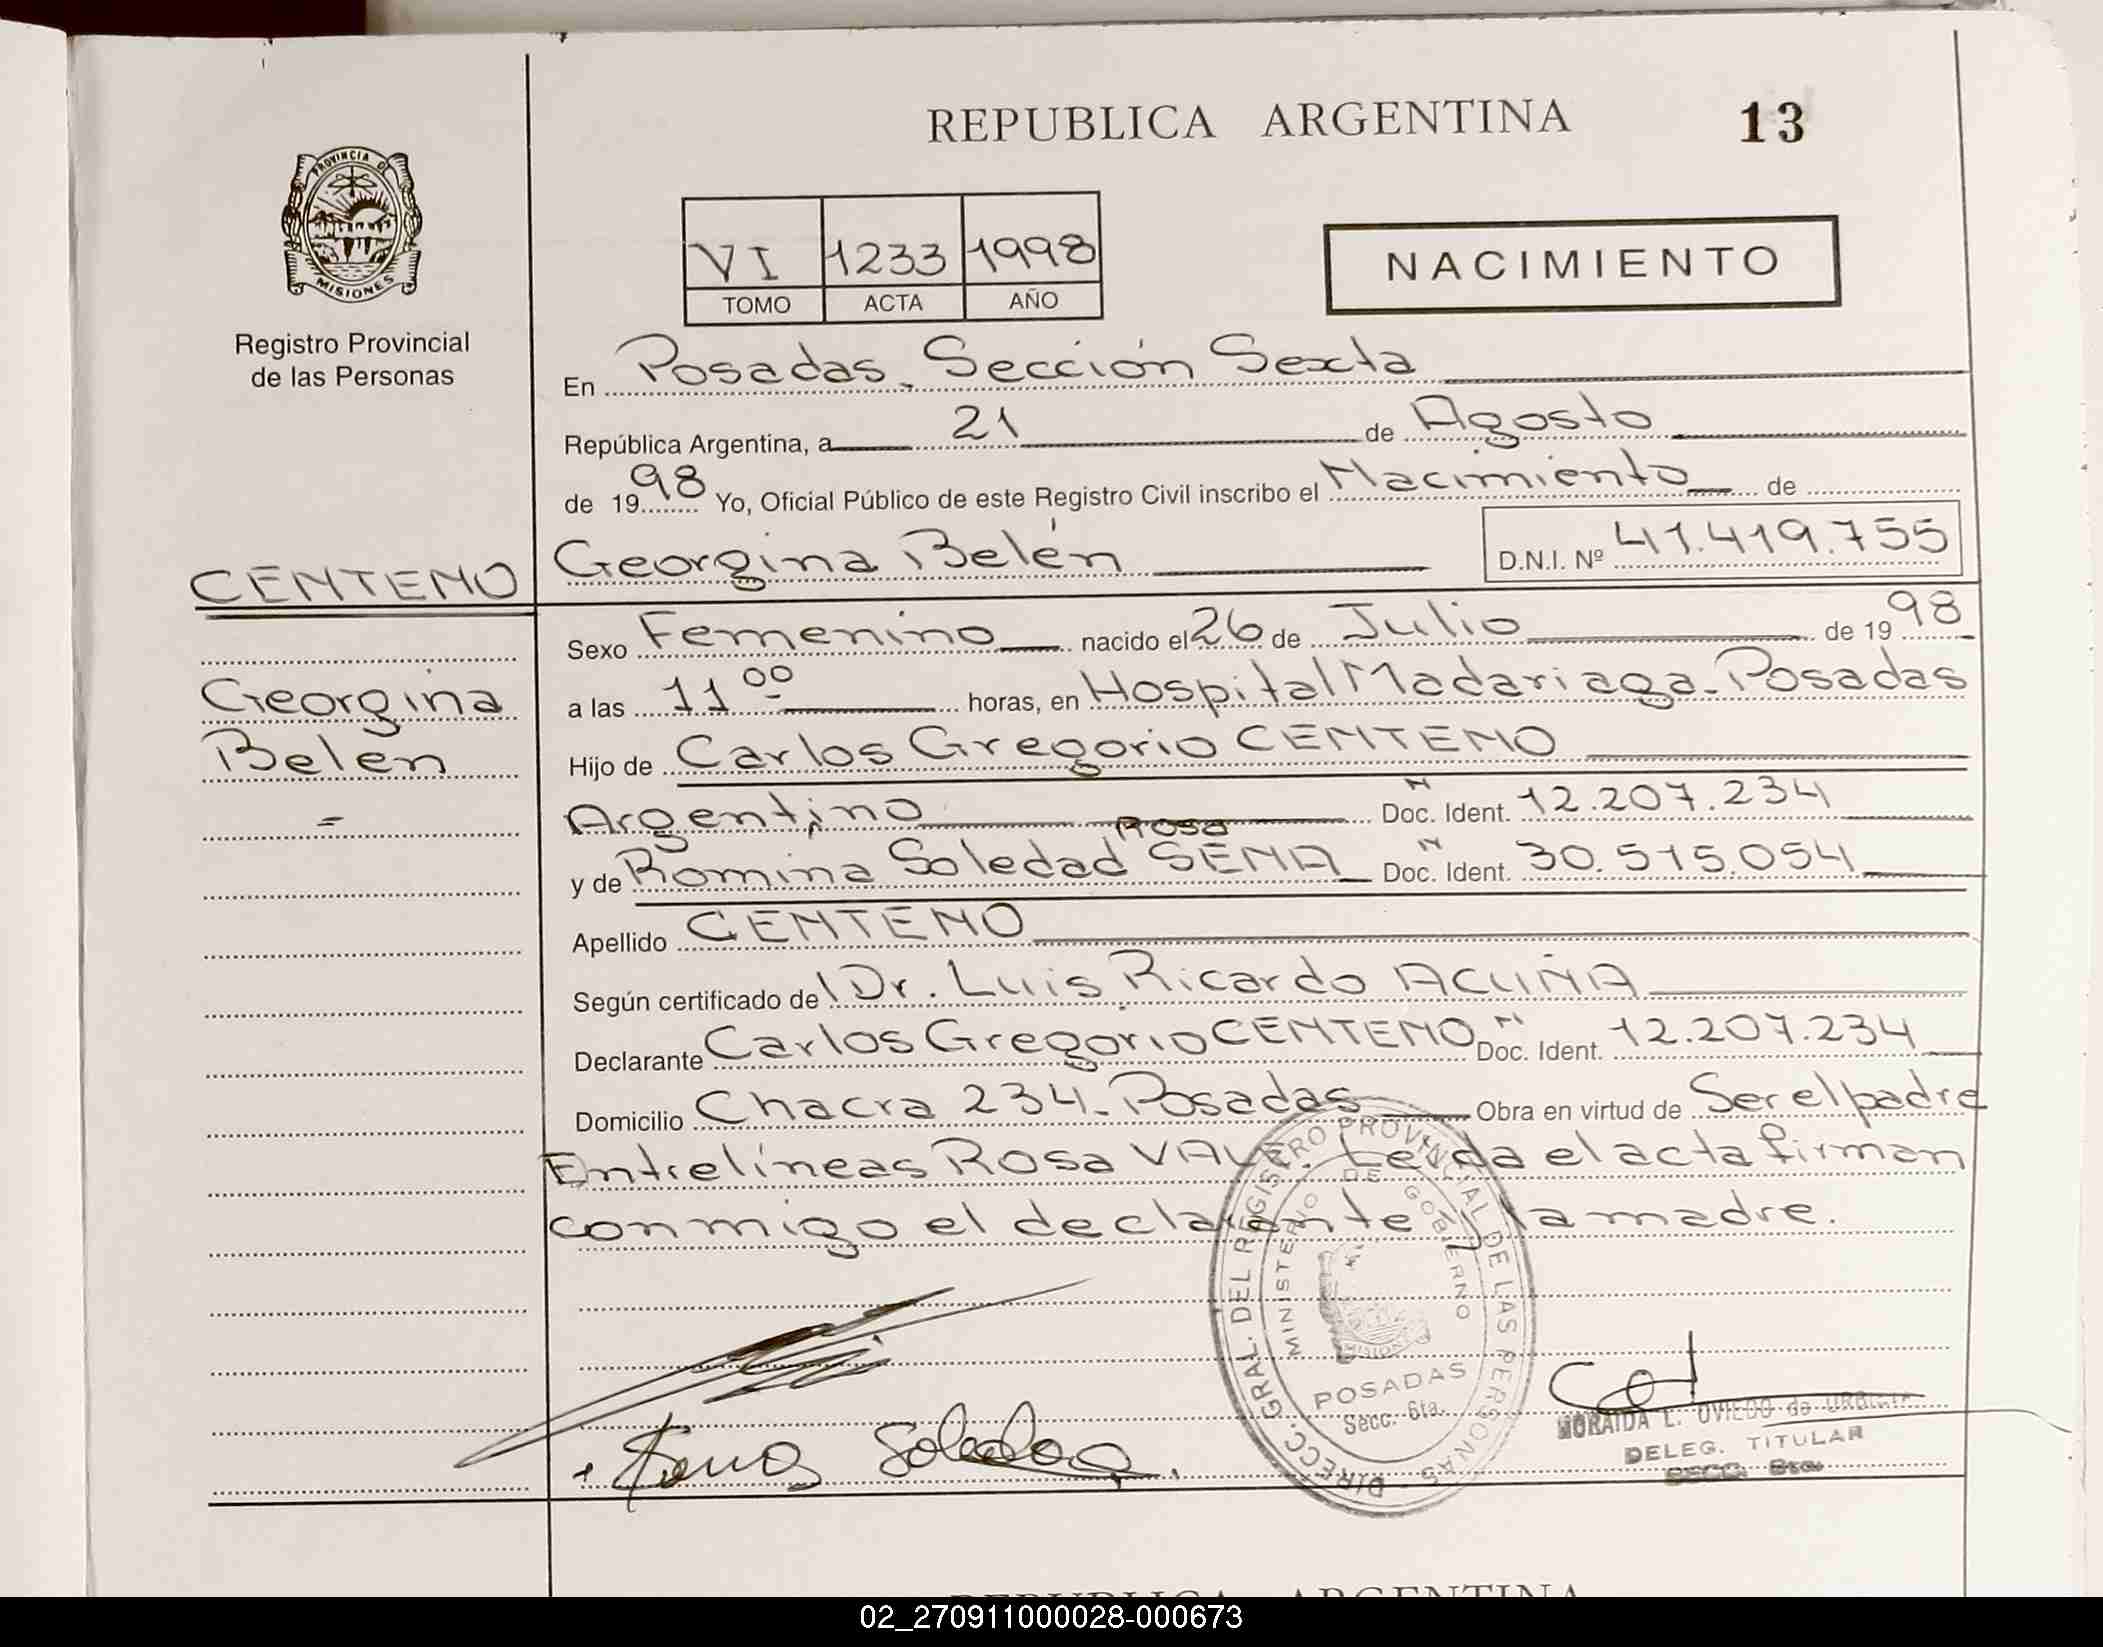 REPUBLICA ARGENTINA 13
PROVINCIA DE
MISIONES
Registro Provincial
de las Personas
VI 1233 1998
TOMO ACTA AÑO
NACIMIENTO
En Posadas, Sección Sexta
República Argentina, a 21 de Agosto
de 1998 Yo, Oficial Público de este Registro Civil inscribo el Nacimiento de
Georgina Belén D.N.I. Nº 41.419.755
CENTENO
Georgina
Belen
=
Sexo Femenino nacido el 26 de Julio de 1998
a las 11 00 horas, en Hospital Madariaga - Posadas
Hijo de Carlos Gregorio CENTENO
Argentino Doc. Ident. N 12.207.234
Rosa
y de Romina Soledad SENA Doc. Ident. N 30.515.054
Apellido CENTENO
Según certificado de Dr. Luis Ricardo ACUÑA
Declarante Carlos Gregorio CENTENO Doc. Ident. N 12.207.234
Domicilio Chacra 234 - Posadas Obra en virtud de Ser el padre
Entrelíneas Rosa VALE. Leída el acta firman
conmigo el declarante y la madre.
DIRECC. GRAL. DEL REGISTRO PROVINCIAL DE LAS PERSONAS
MINISTERIO DE GOBIERNO
MISIONES
POSADAS
Secc. 6ta.
Sena Soledad
MORAIDA L. OVIEDO de
DELEG. TITULAR
SECC. 6ta.
REPUBLICA ARGENTINA
02_270911000028-000673